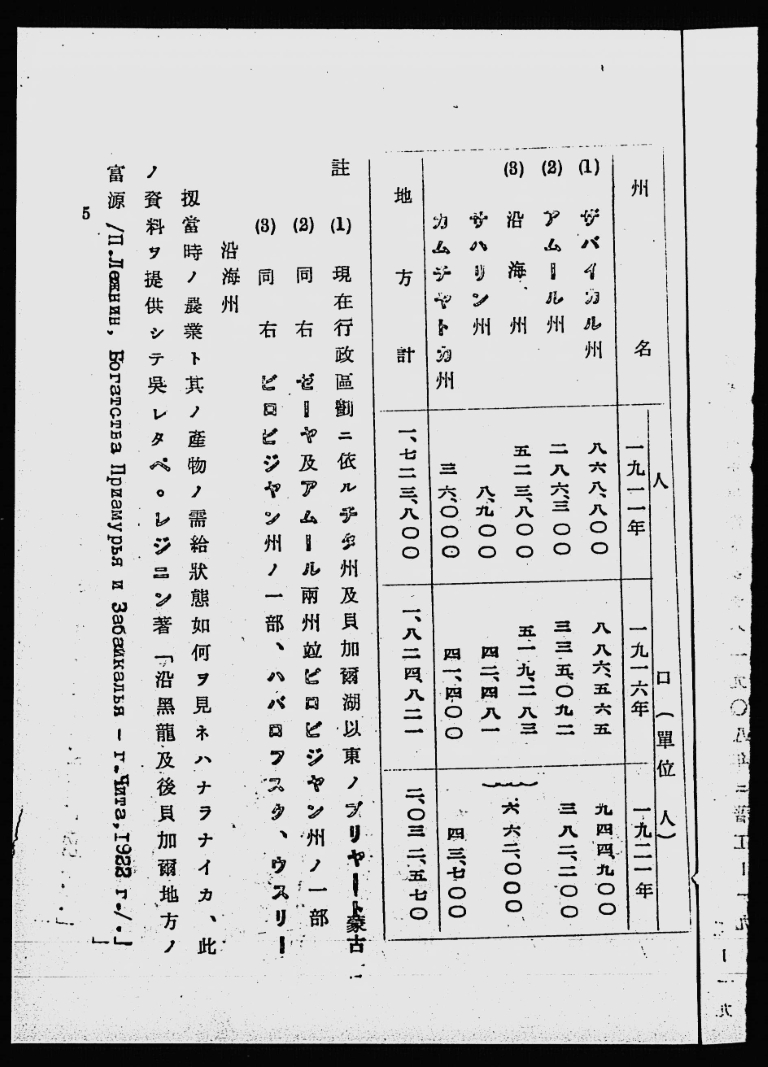 州名　人口（單位　人）
一九一一年　一九一六年　一九二一年
(1) ザバイカル州　八六八、八〇〇　八八六、五六五　九四四、九〇〇
(2) アムール州　二八六、三〇〇　三三五、〇九二　三八二、二〇〇
(3) 沿海州　五二三、八〇〇　五一九、二八三　六六二、〇〇〇
サハリン州　八、九〇〇　四二、四八一
カムチヤトカ州　三六、〇〇〇　四一、四〇〇　四三、七〇〇
地方計　一、七二三、八〇〇　一、八二四、八二一　二、〇三二、五七〇
註　(1) 現在行政區劃ニ依ルチタ州及貝加爾湖以東ノブリヤート蒙古
(2) 同右　ゼーヤ及アムール兩州竝ビロビジヤン州ノ一部
(3) 同右　ビロビジヤン州ノ一部、ハバロフスク、ウスリー
沿海州
扨當時ノ農業ト其ノ産物ノ需給狀態如何ヲ見ネハナラナイカ、此
ノ資料ヲ提供シテ吳レタペ。レジニン著「沿黑龍及後貝加爾地方ノ
富源 /П.Лежнин, Богатства Приамурья и Забайкалья – г.Чита,1922 г./.」
5